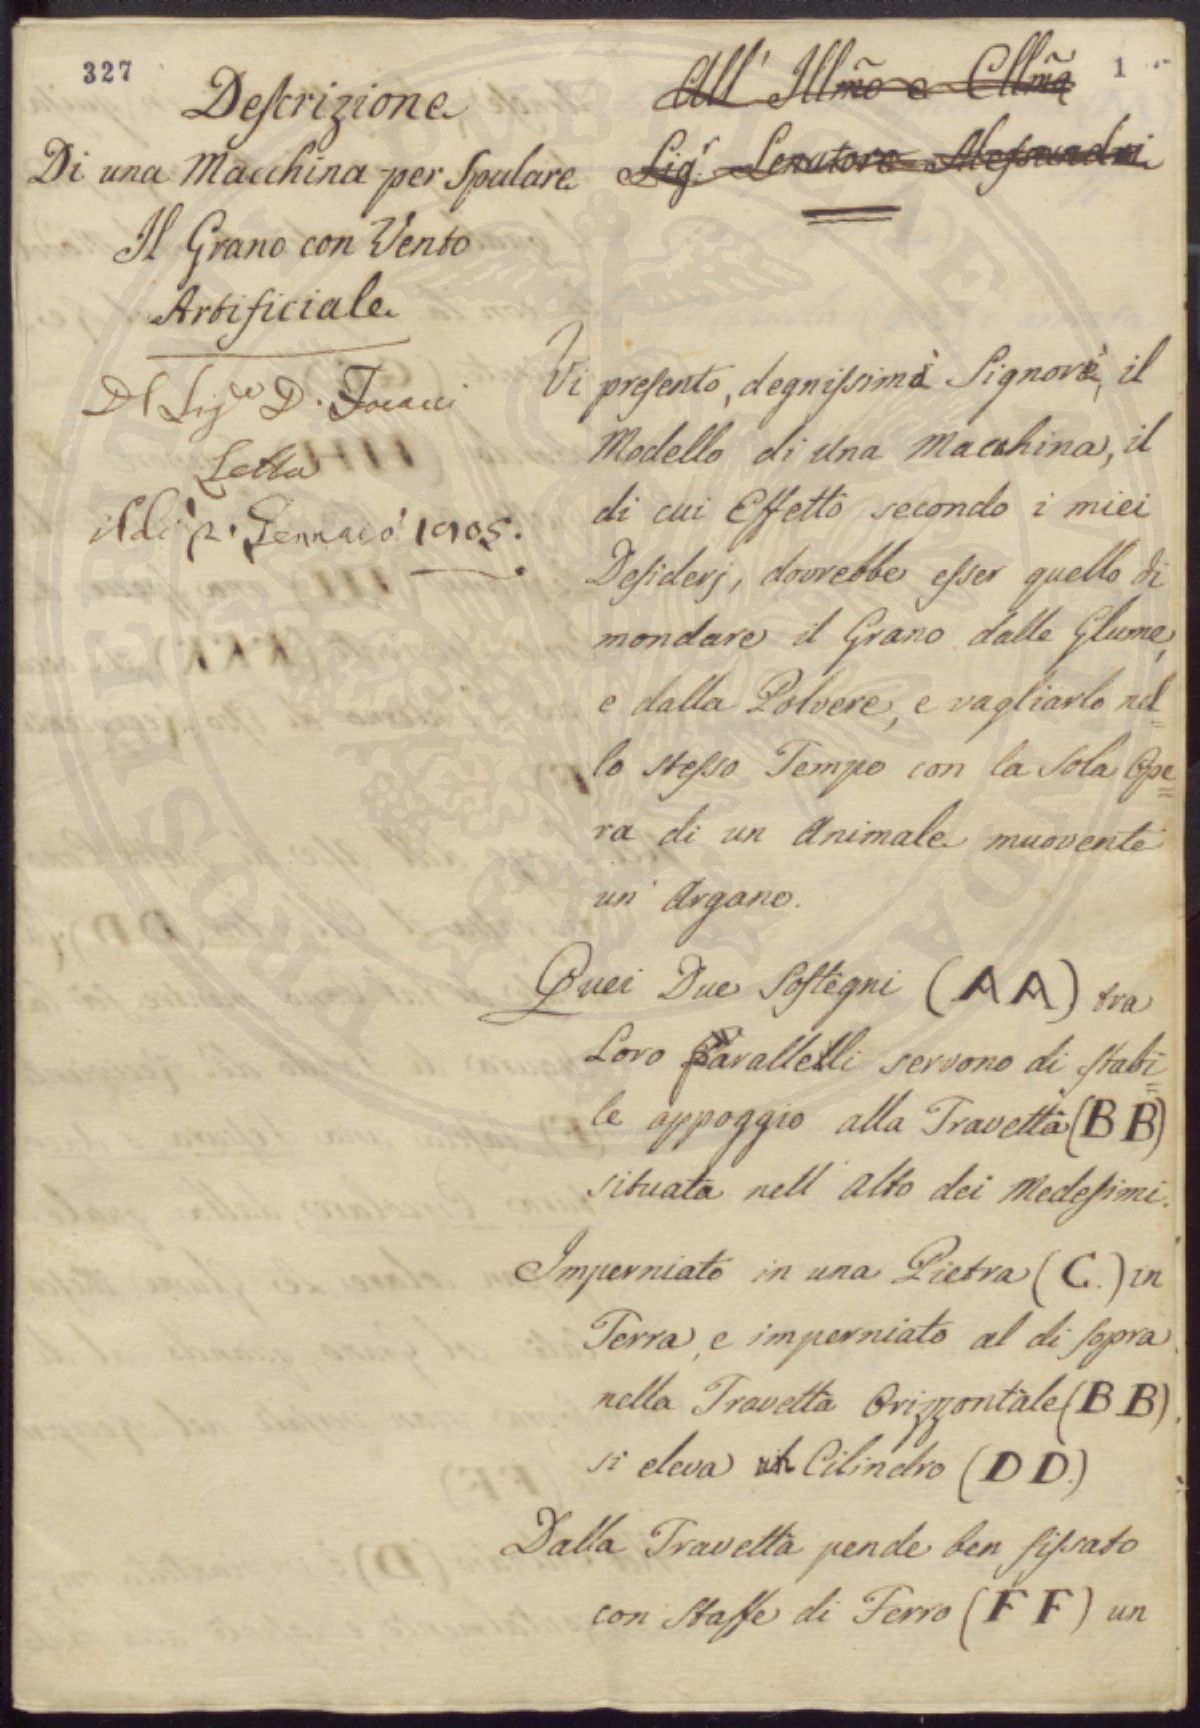 327
1
Descrizione
Di una Macchina per Spulare
Il Grano con Vento
Artificiale
Del Sig.re D.
Letta
il dì 2. Gennaio 1805.
All' Ill\mo e Cll\ma
Sig.r Senatore Alessandri
Vi presento, degnissimi Signori, il
Modello di una Macchina, il
di cui Effetto secondo i miei
Desiderj, dovrebbe esser quello di
mondare il Grano dalle Glume,
e dalla Polvere, e vagliarlo nel=
lo stesso Tempo con la sola Ope=
ra di un Animale muovente
un' Argano.
Quei Due Sostegni (A A) tra
Loro Paralleli servono di stabi=
le appoggio alla Travetta (B B)
situata nell' Alto dei Medesimi.
Imperniato in una Pietra (C.) in
Terra, e imperniato al di sopra
nella Travetta Orizzontale (B B)
si eleva un Cilindro (D D.)
Dalla Travetta pende ben fissato
con Staffe di Ferro (F F) un